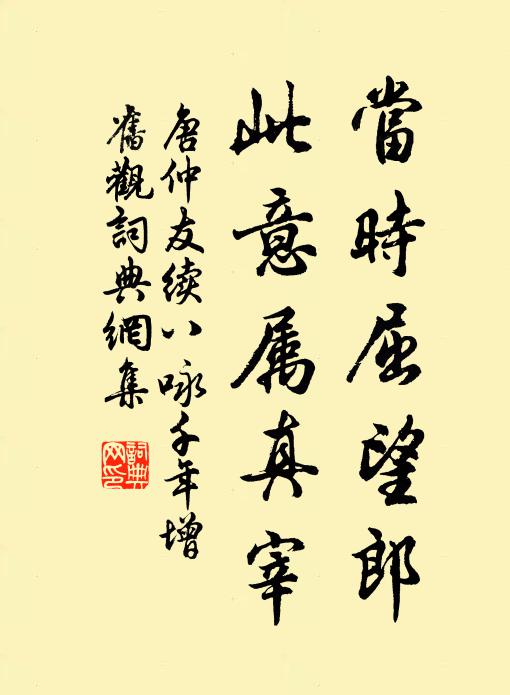 當時屈望郎
此意属真宰
唐仲友續八咏千年增
舊觀詞典網集
詞典
网印